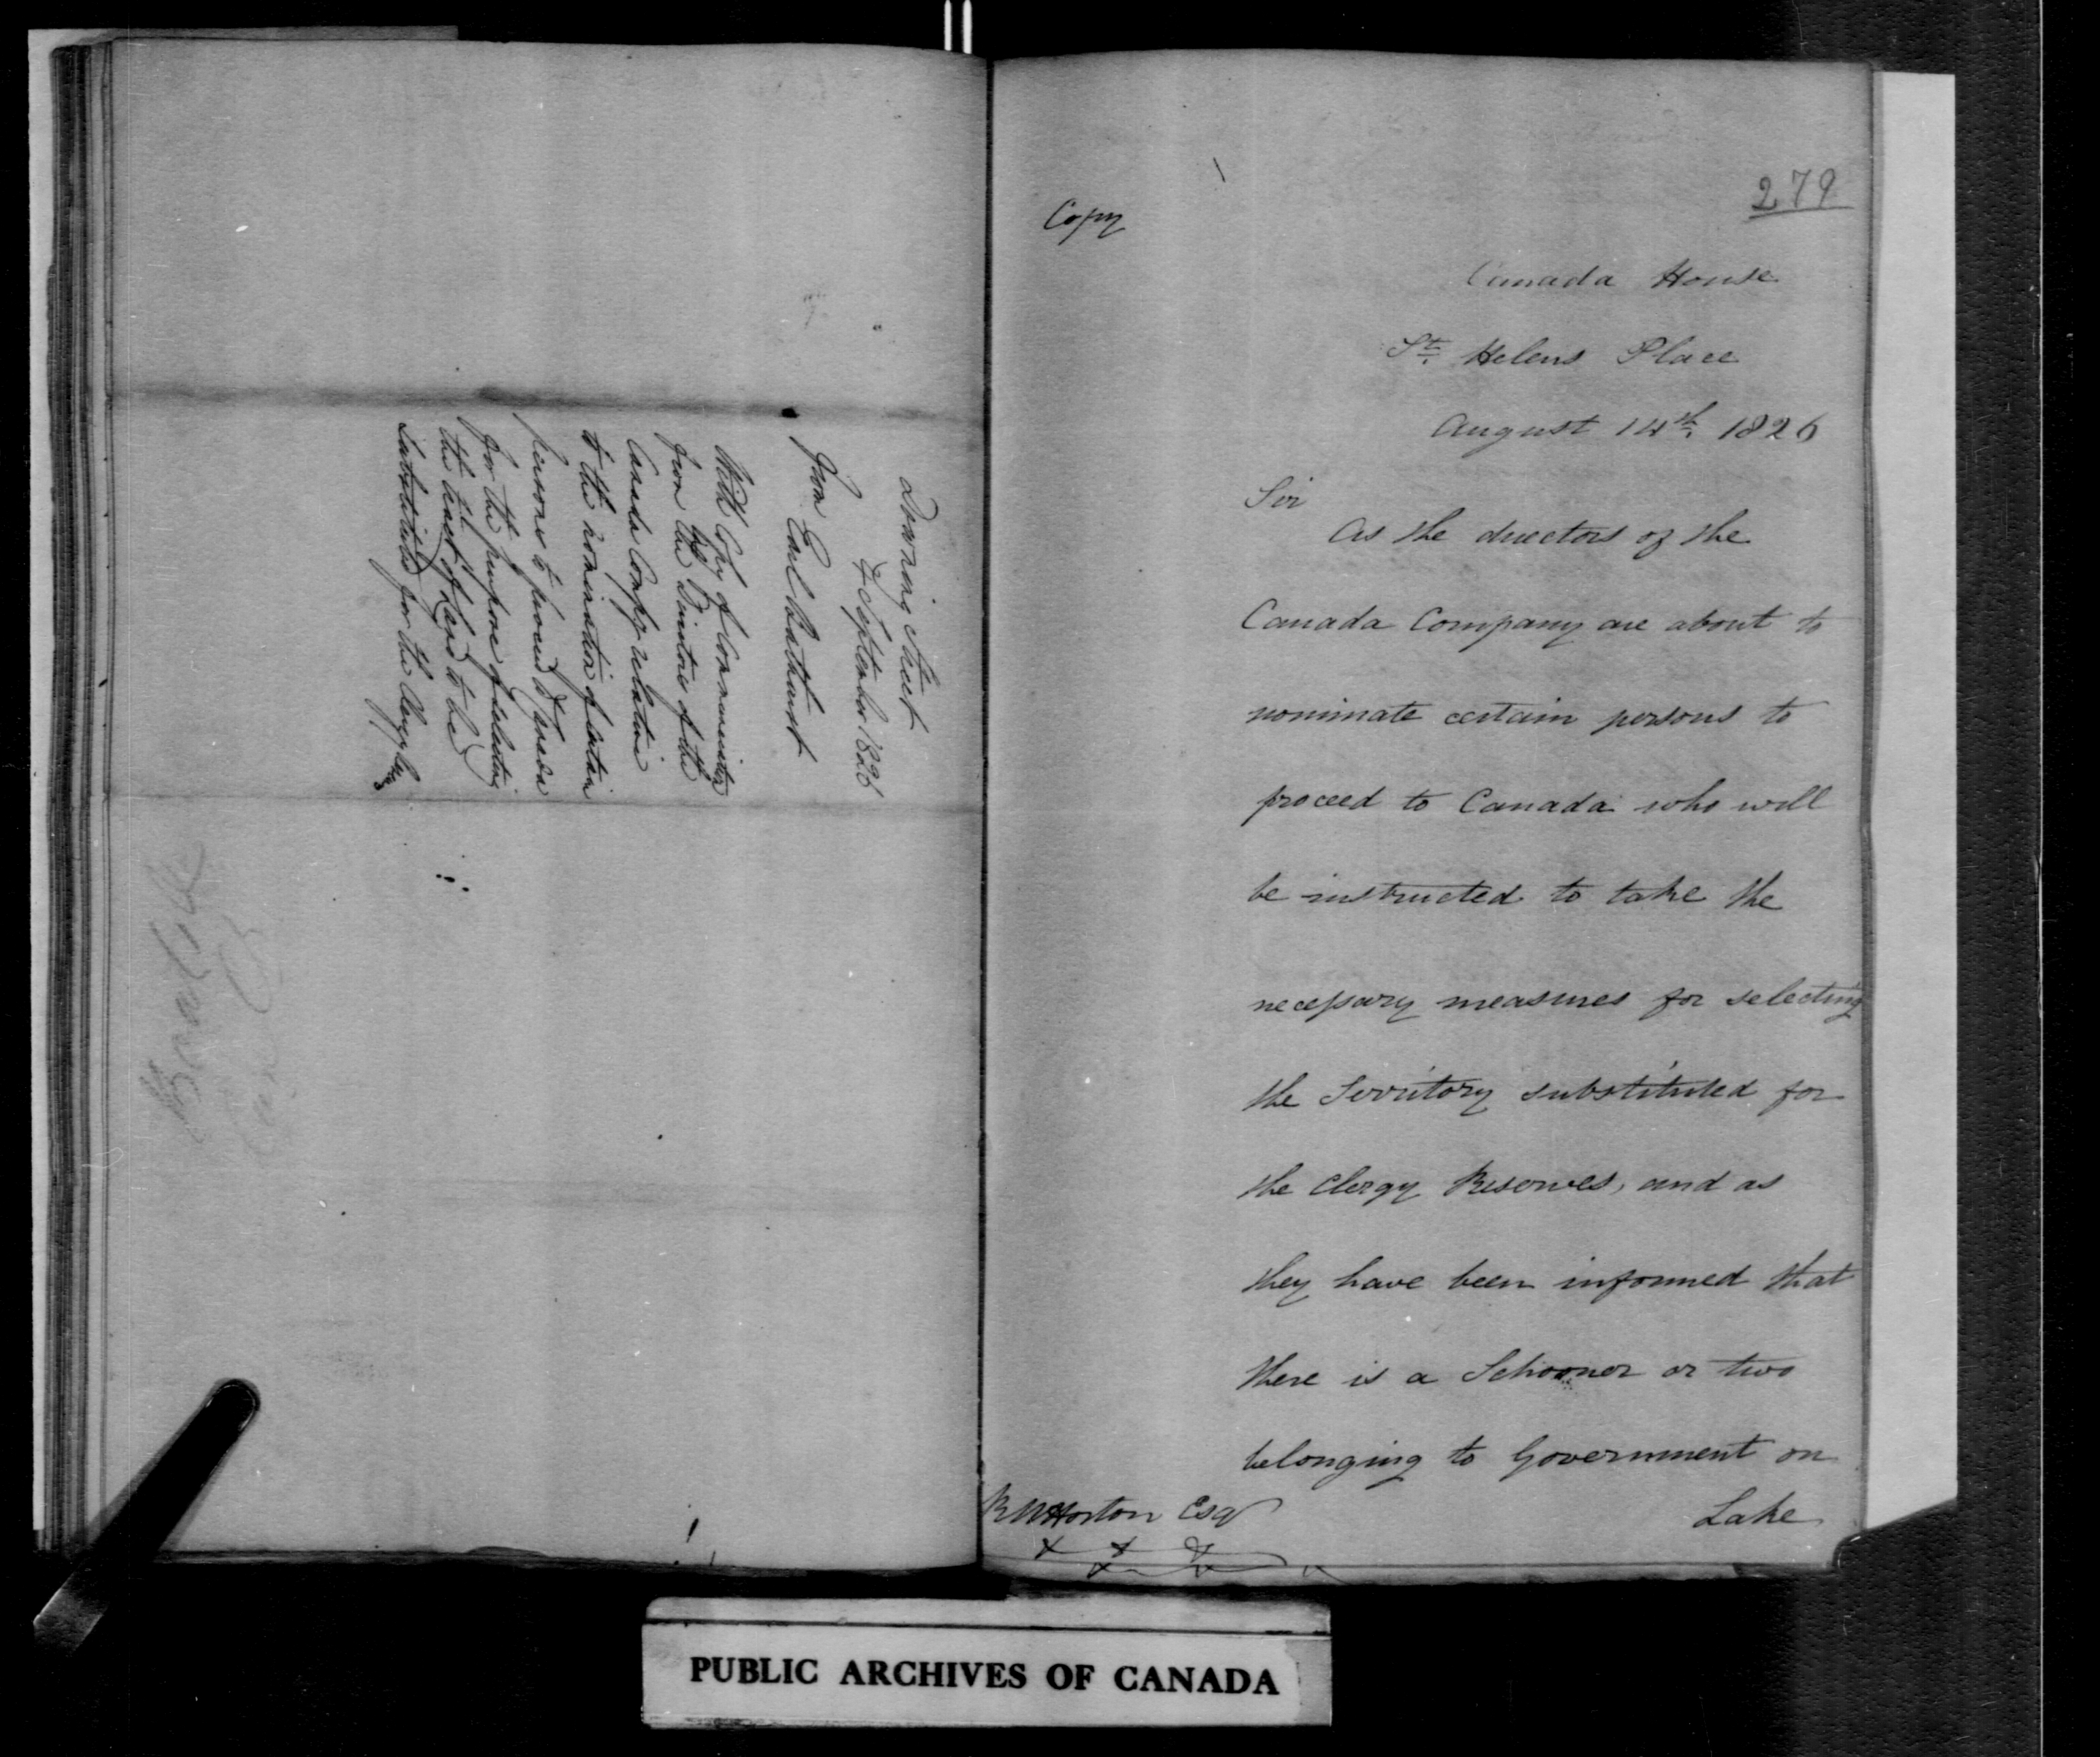 Downing Street
4 September 1826
From Earl Bathurst
With Copy of Communication
from the Directors of the
Canada Compy relative
to the nomination of certain
persons to proceed to
for the purpose of selecting
the tract of Land to be
substituted for the Clergy
Copy
279
Canada House
St. Helens Place
August 14th. 1826
Sir
As the directors of the
Canada Company are about to
nominate certain persons to
proceed to Canada who will
be instructed to take the
necessary measures for selecting
the Territory substituted for
the Clergy Reserves, and as
they have been informed that
there is a Schooner or two
belonging to Government on
Lake
R W Horton Esq
PUBLIC ARCHIVES OF CANADA